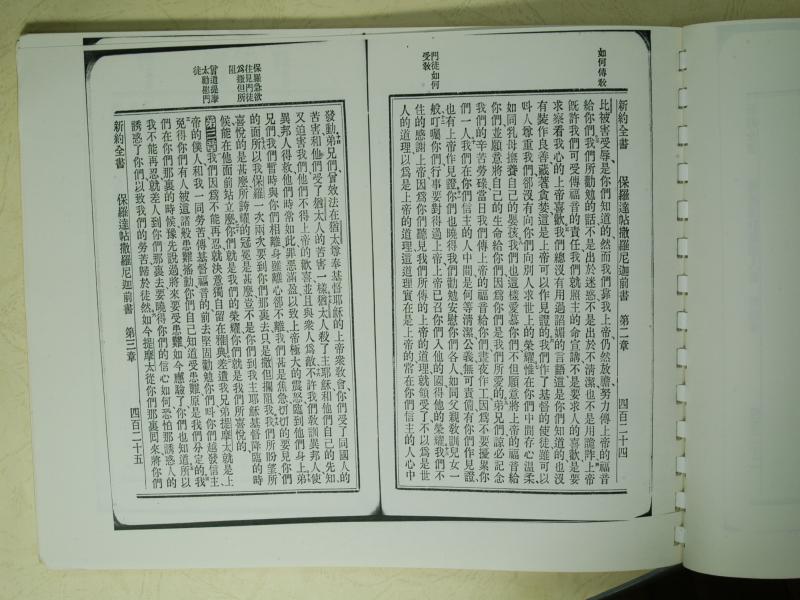 如何傳教
門徒如何
受敎
新約全書 保羅達帖撒羅尼迦前書 第二章 四百二十四
比被害受辱是你們知道的然而我們靠我上帝仍然放膽努力傳上帝的福音
給你們我們所勸勉的話不是出於迷惑不是出於不清潔也不是用詭詐上帝
既許我們可受傳福音的責任我們就照主的命宣講不是要求人的喜歡是要
求察看我心的上帝喜歡我們總沒有用過諂媚的言語這是你們知道的也沒
有裝作良善藏著貪婪這是上帝可以作見證的我們作了基督的使徒雖可以
呌人尊重我們卻沒有向你們向別人求世上的榮耀惟在你們中間存心溫柔
如同乳母撫養自己的嬰孩我們也這樣愛慕你們不但願意將上帝的福音給
你們並願意將自己的生命給你們因為你們是我們所愛的弟兄們諒必記念
我們的辛苦勞碌當日我們傳上帝的福音給你們晝夜作工因為不要擾累你
們一人我們在你們信主的人中間是何等清潔公義無可責備有你們作見證
也有上帝作見證你們也曉得我們勸勉安慰你們各人如同父親敎訓兒女一
般叮囑你們行事要對得過上帝上帝已召你們入他的國得他的榮耀我們不
住的感謝上帝因為你們聽見我們所傳的上帝的道理就領受了不以為是世
人的道理以為是上帝的道理這道理實在是上帝的常在你們信主的人心中
保羅急欲
往見門徒
為撒但所
阻
曾遣提摩
太勸慰門
徒
發動弟兄們曾效法在猶太尊奉基督耶穌的上帝衆敎會你們受了同國人的
苦害和他們受了猶太人的苦害一樣猶太人殺了主耶穌和他們自己的先知
又迫害我們他們不得上帝的歡喜並且與衆人為敵不許我們敎訓異邦人使
異邦人得救他們時常如此罪惡滿盈以致上帝極大的震怒臨到他們身上弟
兄們我們暫時與你們相離身雖離心卻不離我們甚是焦急切切的要見你們
的面所以我保羅一次兩次要到你們那裏去只是撒但攔阻我我們所盼望所
喜悅的是甚麼所誇耀的冠冕是甚麼豈不是你們到我主耶穌基督降臨的時
候能在他面前站立麼你們就是我們的榮耀你們就是我們所喜悅的
第三章我們因為不能再忍就決意獨自留在雅典差遣我兄弟提摩太就是上
帝的僕人和我一同勞苦傳基督福音的前去堅固勸勉你們呌你們越發信主
免得你們有人被這諸般患難搖動你們自己知道受患難原是我們分定的我
們在你們那裏的時候豫先說過將來要受患難如今應驗了你們也知道所以
我不能再忍就差人到你們那裏去要曉得你們的信心如何恐怕那誘惑人的
誘惑了你們以致我們的勞苦歸於徒然如今提摩太從你們那裏囘來將你們
新約全書 保羅達帖撒羅尼迦前書 第三章 四百二十五